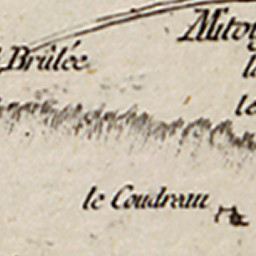 Mitoy
Brûlée
le
le Coudreau